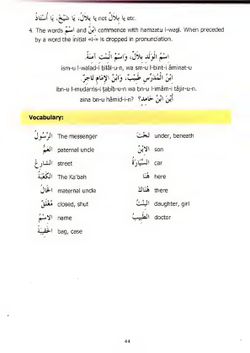 يَا بِلَالُ، يَا شَيْخُ، يَا أُسْتَاذُ not يَا بِلَالٌ etc.
4. The words اِسْمٌ and اِبْنٌ commence with hamzatu l-waṣl. When preceded
by a word the initial «i-» is dropped in pronunciation.
اِسْمُ الْوَلَدِ بِلَالٌ، وَاسْمُ الْبِنْتِ آمِنَةُ.
ism-u l-walad-i bilāl-u-n, wa sm-u l-bint-i āminat-u
اِبْنُ الْمُدَرِّسِ طَبِيبٌ، وَابْنُ الْإِمَامِ تَاجِرٌ.
ibn-u l-mudarris-i ṭabīb-u-n wa bn-u l-imām-i tājir-u-n.
أَيْنَ ابْنُ حَامِدٍ؟
aina bn-u ḥāmid-i-n?
Vocabulary:
الرَّسُولُ The messenger تَحْتَ under, beneath
العَمُّ paternal uncle الاِبْنُ son
الشَّارِعُ street السَّيَّارَةُ car
الكَعْبَةُ The Ka'bah هُنَا here
الخَالُ maternal uncle هُنَاكَ there
مُغْلَقٌ closed, shut البِنْتُ daughter, girl
الاِسْمُ name الطَّبِيبُ doctor
الحَقِيبَةُ bag, case
44